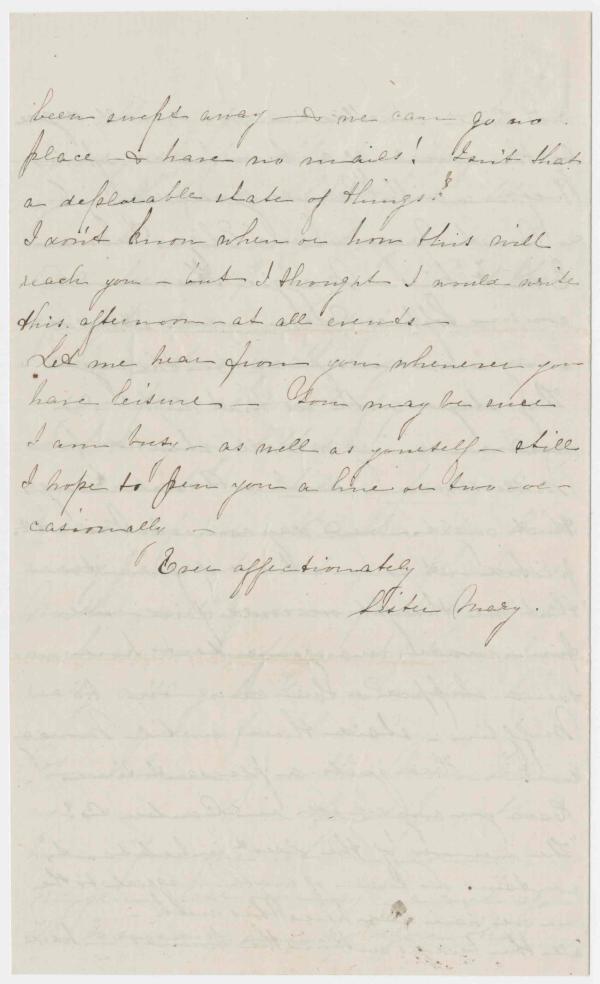 been swept away – & we can go no
place – & have no mails! Isn't that
a deplorable state of things?
I don't know when or how this will
reach you – but I thought I would write
this afternoon – at all events –
Let me hear from you whenever you
have leisure – You may be sure
I am busy – as well as yourself – still
I hope to pen you a line or two – oc-
casionally –
Ever affectionately
Sister Mary.